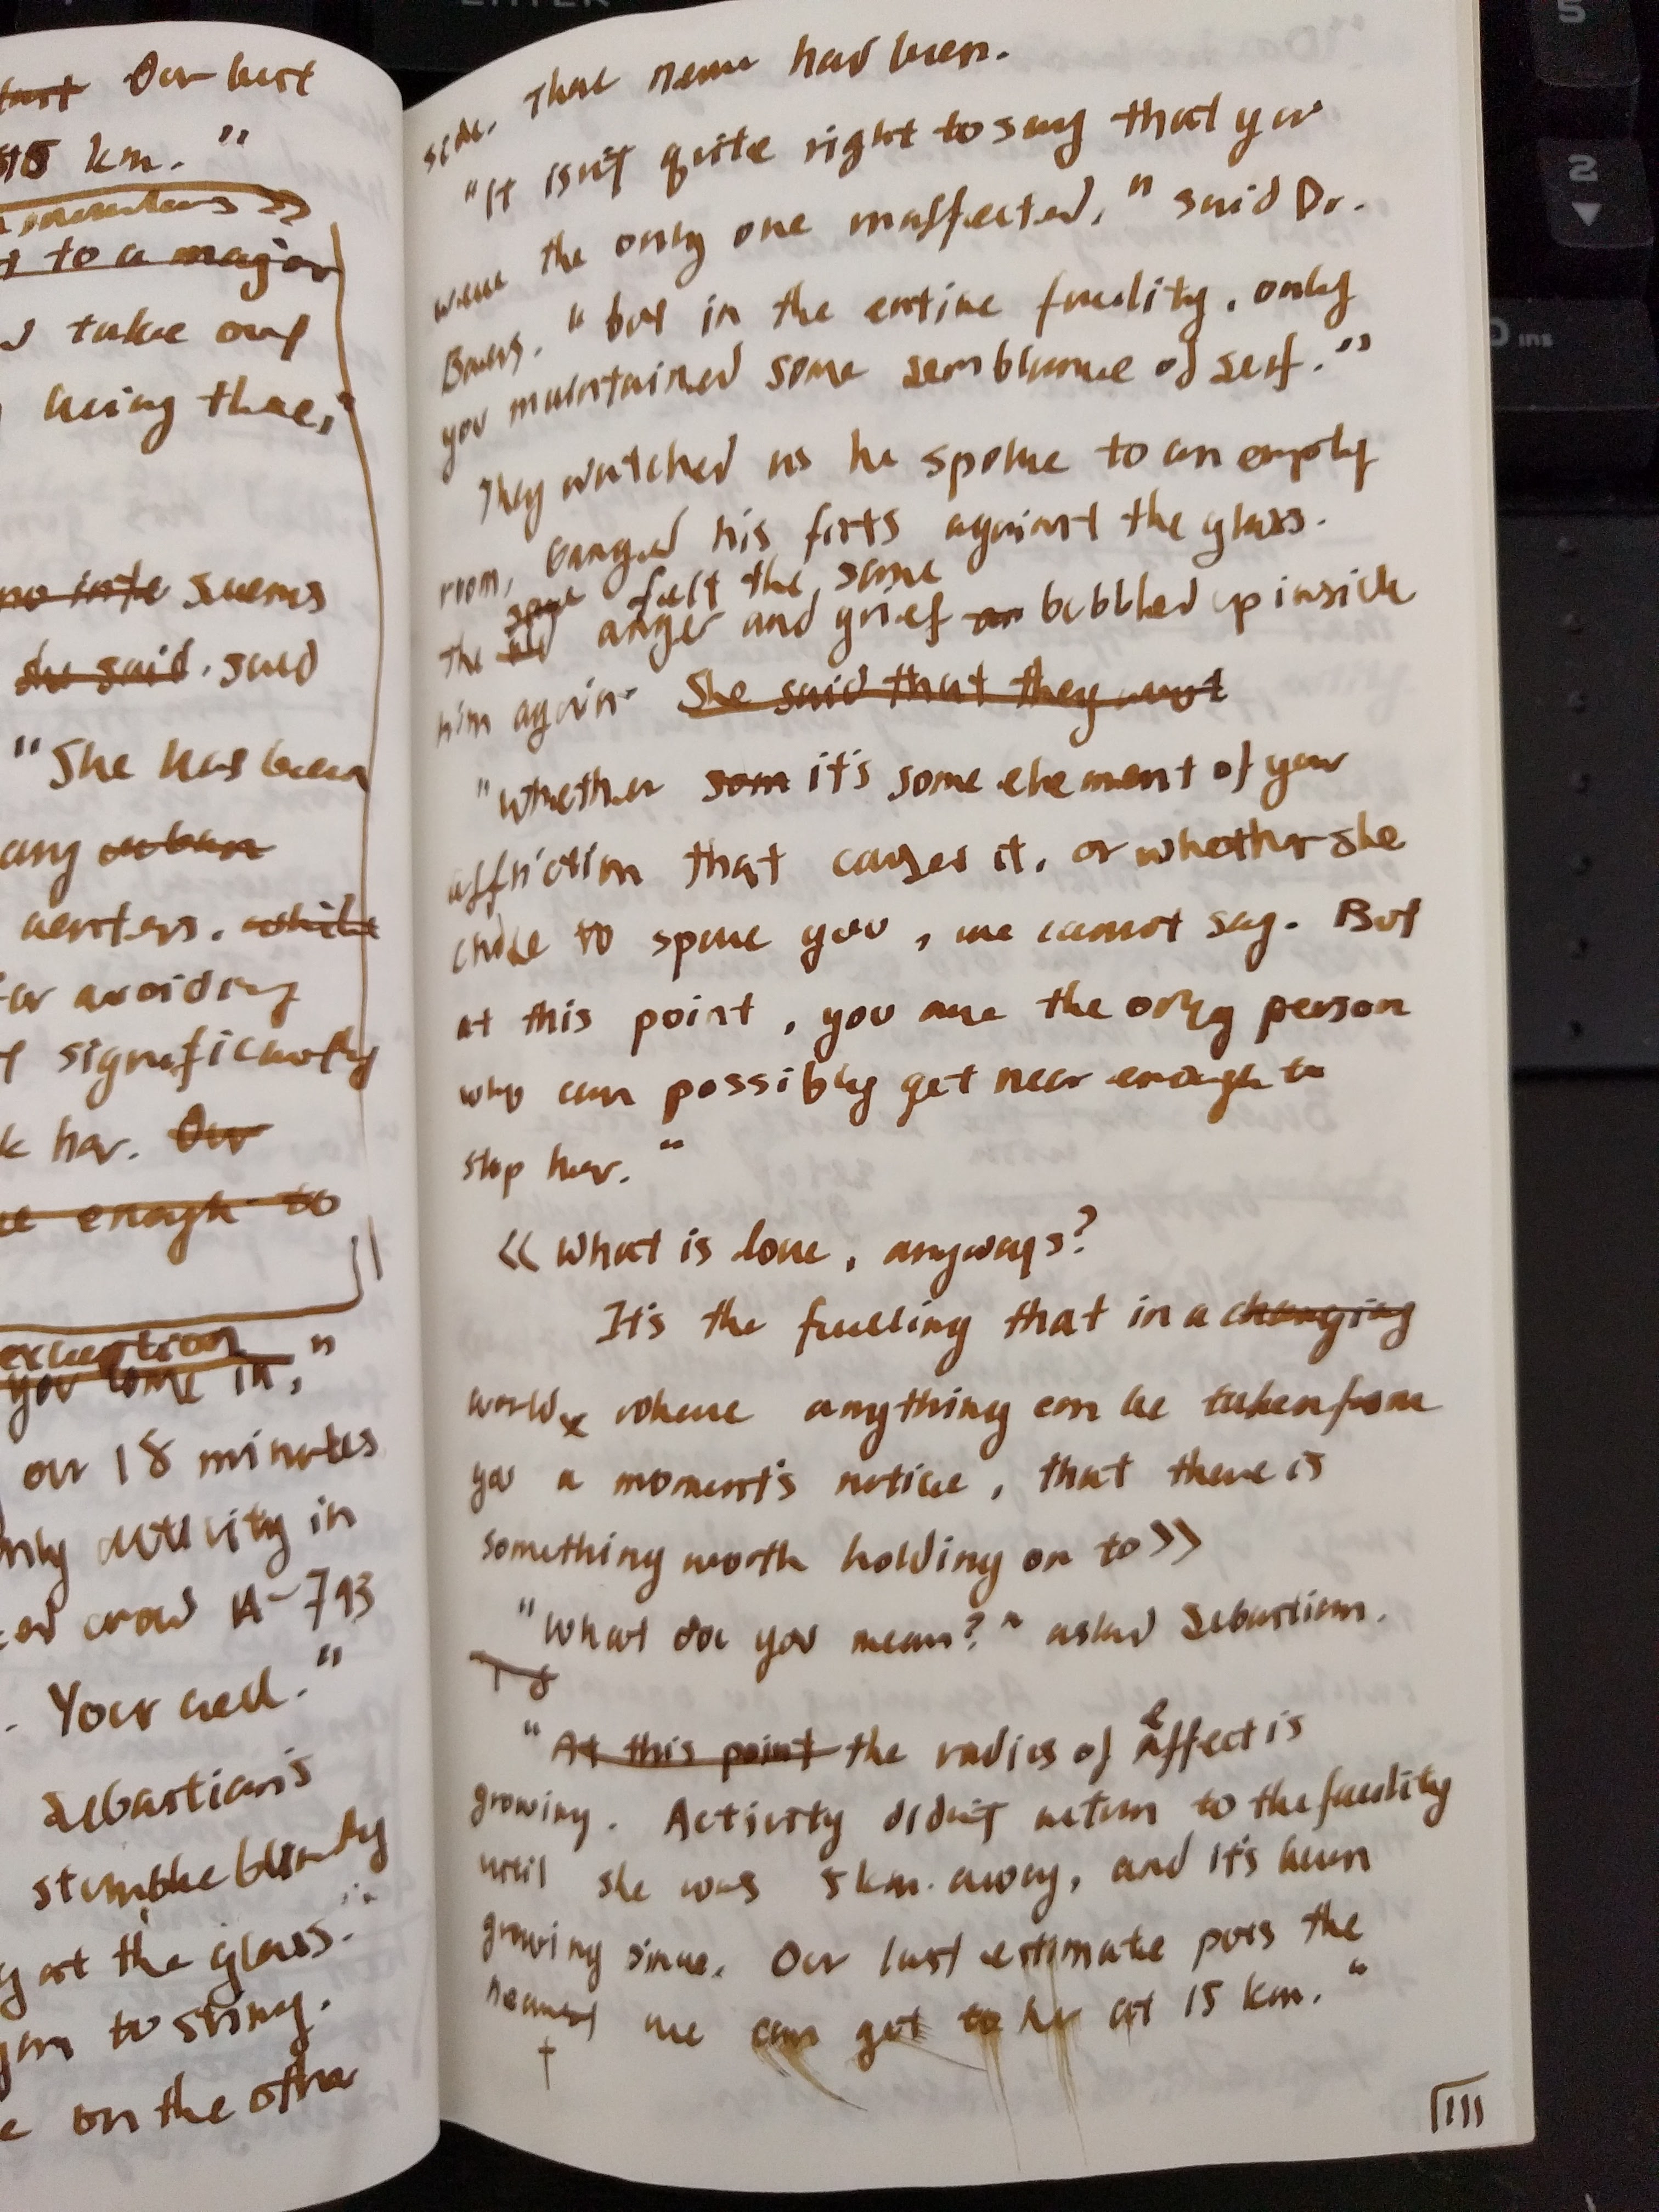 Our last
km."
to a major
take out
being there,"
seems
she said. said
"She has been
any
centers.
for avoiding
significantly
her. Our
enough to
you come in,"
our 18 minutes
only activity in
crowd A-793
. Your cell."
Sebastian's
stumble blindly
at the glass.
to sting.
on the other
side. There never had been.
"It isn't quite right to say that you
were the only one unaffected," said Dr.
Bowers. "but in the entire facility, only
you maintained some semblance of self."
They watched as he spoke to an empty
room, banged his fists against the glass.
same felt the same
The old anger and grief bubbled up inside
him again. She said that they want
"Whether som it's some element of your
affliction that causes it, or whether she
chose to spare you, we cannot say. But
at this point, you are the only person
who can possibly get near enough to
stop her."
《 What is love, anyways?
It's the feeling that in a changing
world, where anything can be taken from
you a moment's notice, that there is
something worth holding on to 》
"What do you mean?" asked Sebastian.
"At this point the radius of effect is
growing. Activity didn't return to the facility
until she was 5 km. away, and it's been
growing since. Our last estimate puts the
nearest we can get to her at 15 km."